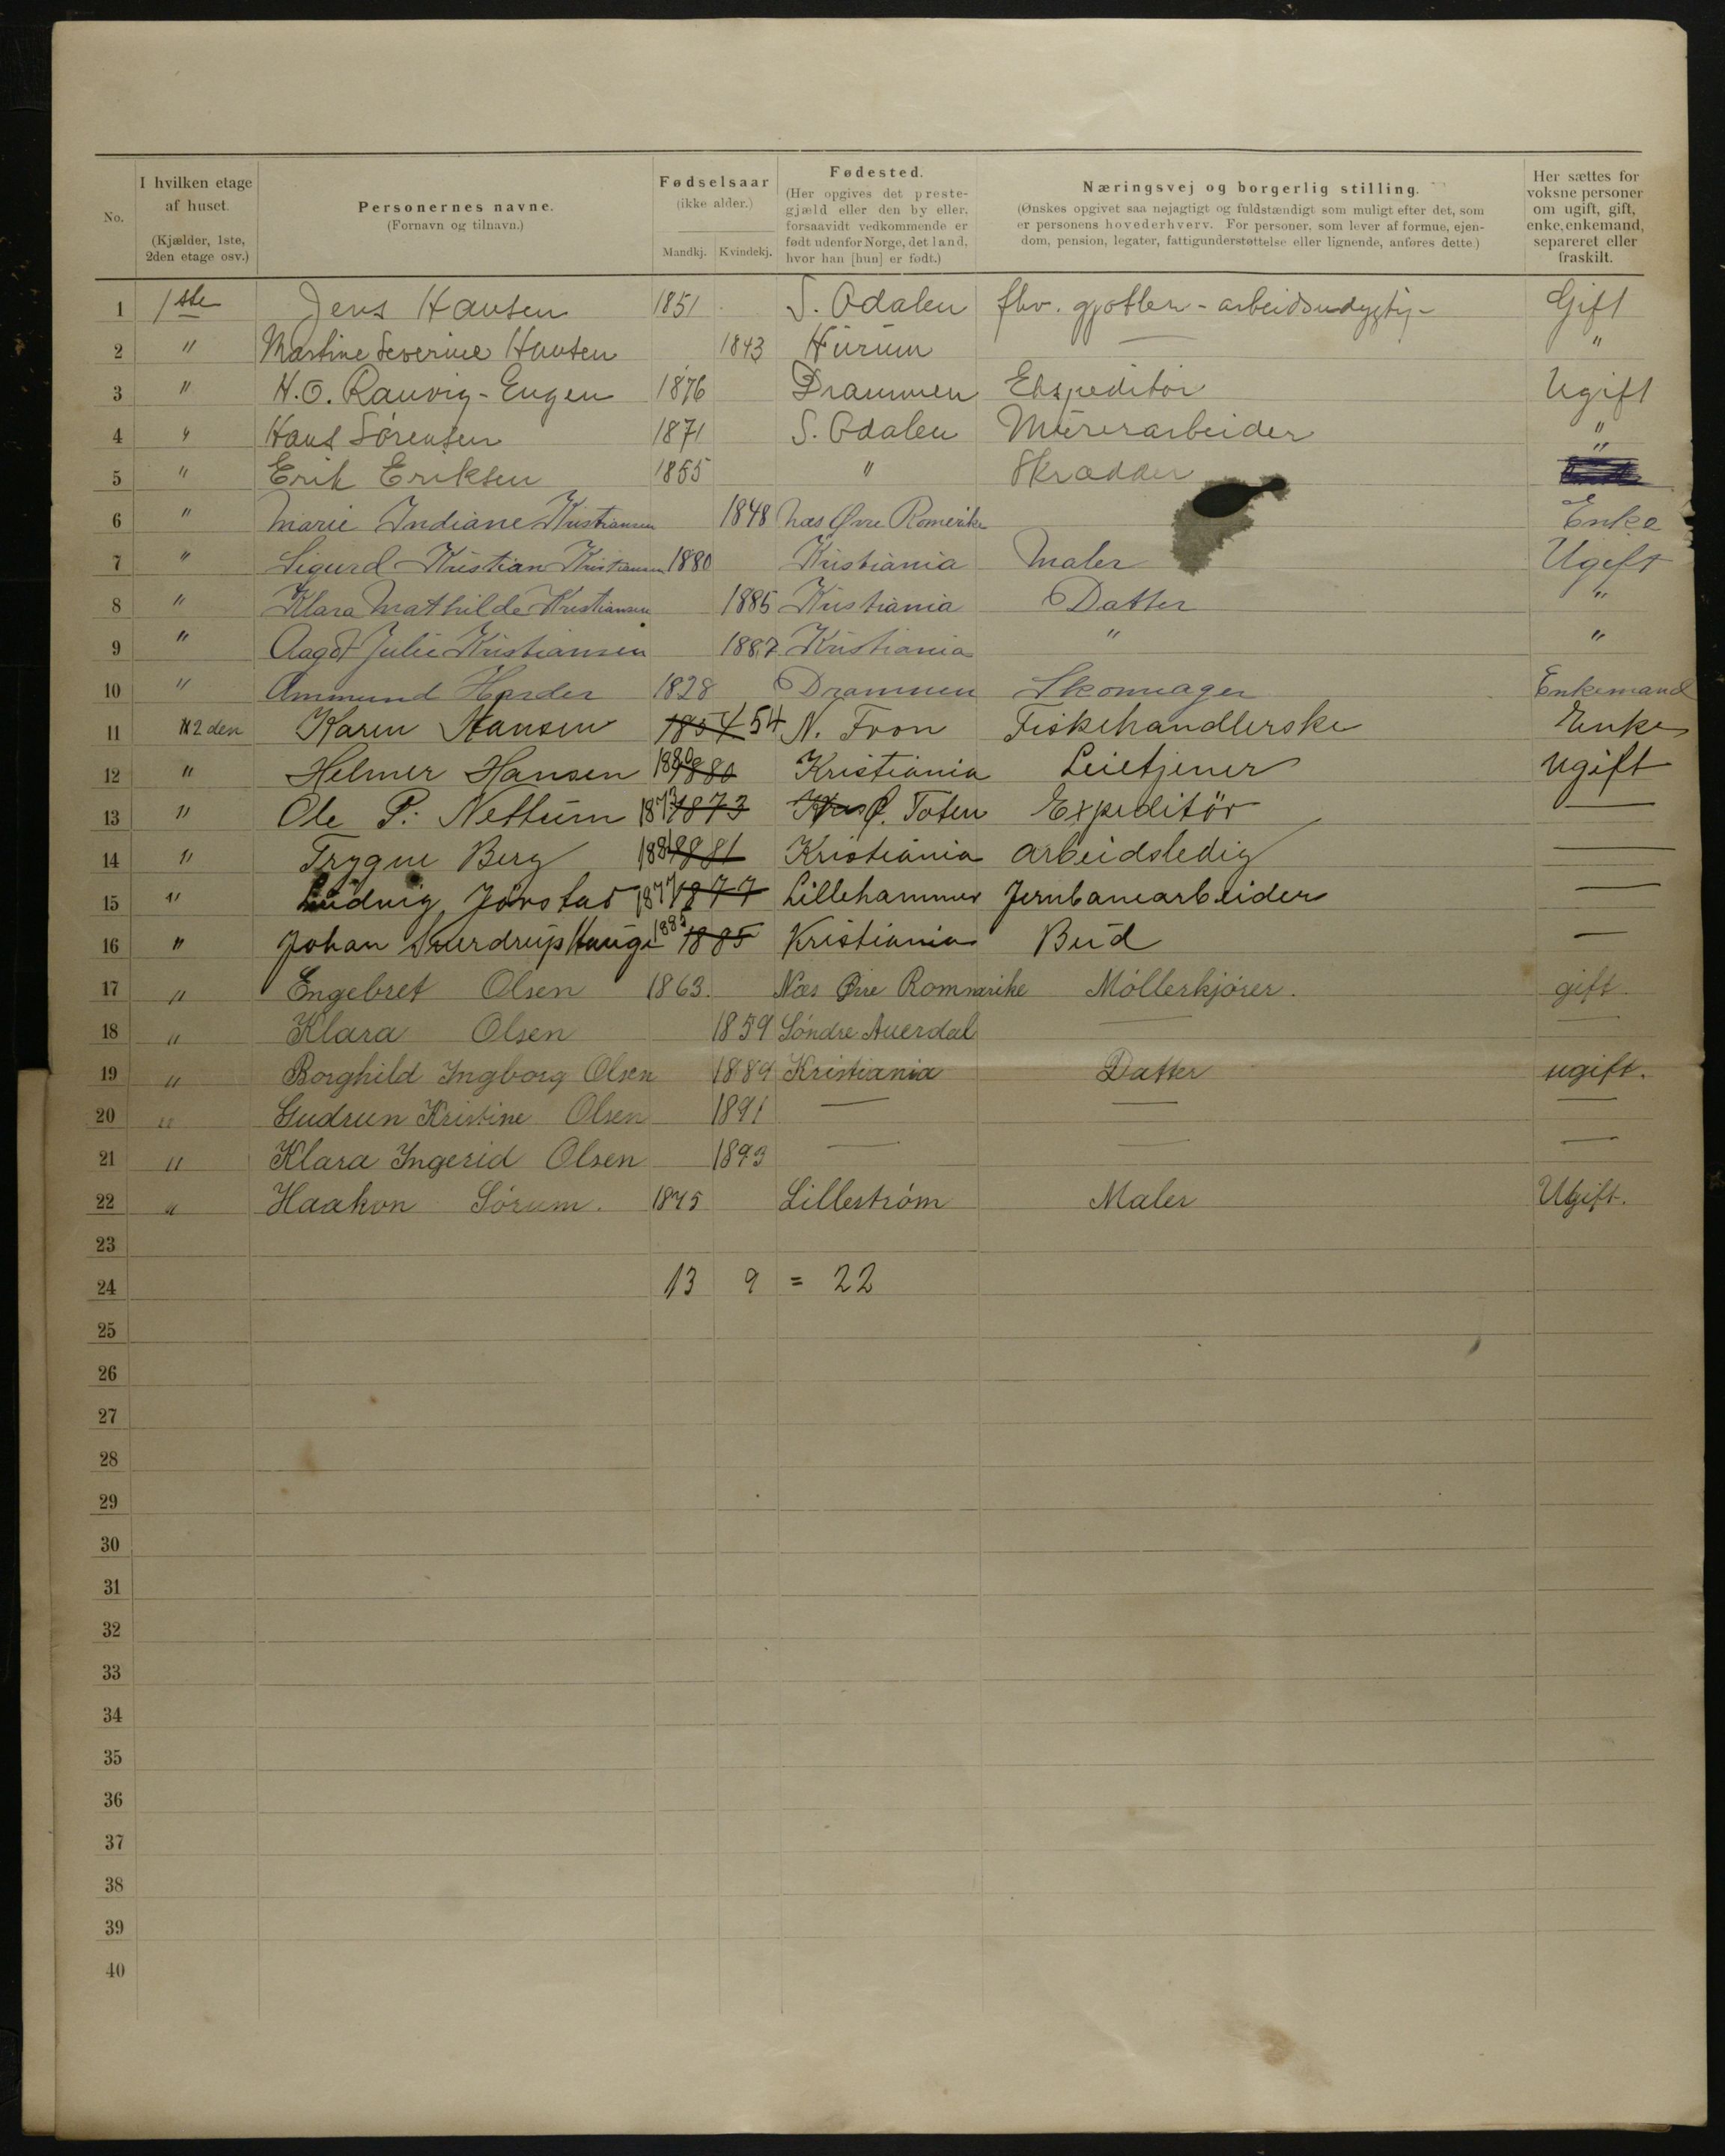 No. | I hvilken etage af huset. (Kjælder, 1ste, 2den etage osv.) | Personernes navne. (Fornavn og tilnavn.) | Fødselsaar (ikke alder.) Mandkj. Kvindekj. | Fødested. (Her opgives det prestegjæld eller den by eller, forsaavidt vedkommende er født udenfor Norge, det land, hvor han [hun] er født.) | Næringsvej og borgerlig stilling. (Ønskes opgivet saa nøjagtigt og fuldstændigt som muligt efter det, som er personens hovederhverv. For personer, som lever af formue, ejendom, pension, legater, fattigunderstøttelse eller lignende, anføres dette.) | Her sættes for voksne personer om ugift, gift, enke, enkemand, separeret eller fraskilt.
1 1ste Jens Hansen 1851 S. Odalen fhv. gjøtler - arbeidsudygtig - Gift
2 " Martine Severine Hansen 1843 Hurum — "
3 " H. O. Ranvig - Engen 1876 Drammen Ekspeditør Ugift
4 " Hans Sørensen 1871 S. Odalen Murerarbeider "
5 " Erik Eriksen 1855 " Skrædder "
6 " Marie Indiane Kristiansen 1848 Næs Øvre Romerike Enke
7 " Sigurd Kristian Kristiansen 1880 Kristiania Maler Ugift
8 " Klara Mathilde Kristiansen 1885 Kristiania Datter "
9 " Aagot Julie Kristiansen 1887 Kristiania " "
10 " Ammund Harder 1828 Drammen Skomager Enkemand
11 2den Karen Hansen 1854 54 N. Fron Fiskehandlerske Enke
12 " Helmer Hansen 1880 1880 Kristiania Leietjener ugift
13 " Ole P. Nettum 1873 1873 Ø. Toten Expeditör —
14 " Trygve Berg 1881 1881 Kristiania arbeidsledig —
15 " Ludvig Jørstad 1877 1877 Lillehammer Jernbanearbeider —
16 " Johan Sverdrup Hauge 1885 1885 Kristiania Bud —
17 " Engebret Olsen 1863. Næs Øvre Rommerike Möllerkjörer. gift
18 " Klara Olsen 1859 Söndre Auerdal — —
19 " Borghild Ingborg Olsen 1889 Kristiania Datter ugift.
20 " Gudrun Kristine Olsen 1891 — — —
21 " Klara Ingerid Olsen 1893 — — —
22 " Haakon Sörum. 1875 Lilleström Maler Ugift.
23
24 13 9 = 22
25
26
27
28
29
30
31
32
33
34
35
36
37
38
39
40